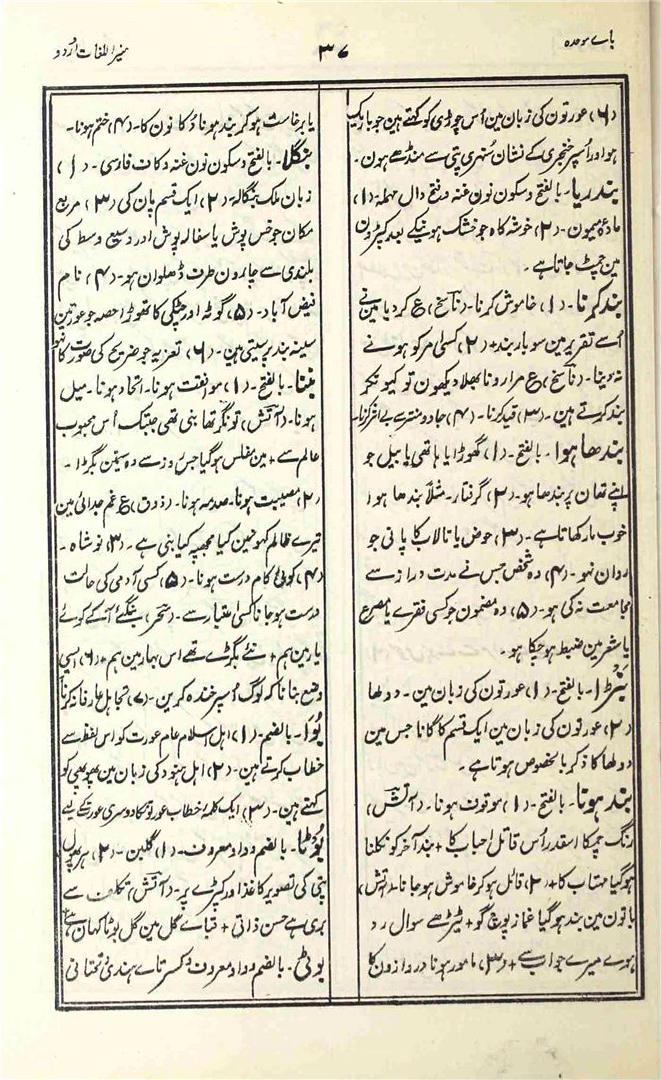 باے موحدہ
۳۷
منیر اللغات اُردو
(۶) عورتون کی زبان مین اُس چوڑی کو کہتے ہین جو باریک
ہو اور اُسپر خنجری کے نشان سُنہری پتی سے منڈھے ہون۔
بندریا۔ بالفتح و سکون نون غنہ و فتح دال مہملہ (۱)
مادۂ میمون۔ (۲) خوشہ کاہ جو خشک ہونیکے بعد کپڑون
مین چمٹ جاتا ہے۔
بند کرنا۔ (۱) خاموش کرنا۔ (ناسخ) ع کر دیا مین نے
اُسے تقریر مین سو بار بند + (۲) کسی امر کو ہونے
نہ دینا۔ (ناسخ) ع مرا رونا بھلا دیکھون تو کیونکر
بند کرتے ہین۔ (۳) قید کرنا۔ (۴) جادو منتر سے بے اثر کرنا۔
بندھا ہوا۔ بالفتح۔ (۱) گھوڑا یا ہاتھی یا بیل جو
اپنے تھان پر بندھا ہو۔ (۲) گرفتار۔ مثلاً بندھا ہوا
خوب مار کھاتا ہے۔ (۳) حوض یا تالاب کا پانی جو
روان نہو۔ (۴) وہ شخص جس نے مدت دراز سے
مجامعت نہ کی ہو۔ (۵) وہ مضمون جو کسی فقرے یا مصرع
یا شعر مین ضبط ہو چکا ہو۔
بنڑا۔ بالفتح۔ (۱) عورتون کی زبان مین۔ دولھا
(۲) عورتون کی زبان مین ایک قسم کا گانا جس مین
دولھا کا ذکر بالخصوص ہوتا ہے۔
بند ہونا۔ بالفتح۔ (۱) موقوف ہونا۔ (آتش)
رنگ چمکا اسقدر اُس قاتل احباب کا + بند آخر کو نکلنا
ہو گیا مہتاب کا + (۲) قائل ہو کر خاموش ہو جانا۔ (آتش)
باتون مین بند ہو گیا غماز پوچ گو + ٹیڑھے سوال رد
ہوے میرے جواب سے + (۳) مامور ہونا دروازون کا
یا برخاست ہو کر بند ہونا دُکانون کا۔ (۴) ختم ہونا۔
بنگلا۔ بالفتح و سکون نون غنہ و کاف فارسی۔ (۱)
زبان ملک بنگالہ (۲) ایک قسم پان کی (۳) مربع
مکان جو خس پوش یا سفالہ پوش اور وسیع وسط کی
بلندی سے چارون طرف ڈھلوان ہو۔ (۴) نام
فیض آباد۔ (۵) گوٹہ اور چٹکی کا تھوڑا حصہ جو عورتین
سینہ بند پر سیتی ہین۔ (۶) تعزیہ جو ضریح کی صورت کا نہو
بننا۔ بالفتح۔ (۱) موافقت ہونا۔ اتحاد ہونا۔ میل
ہونا۔ (آتش) تونگر تھا بنی تھی جبتک اُس محبوب
عالم سے + مین مفلس ہو گیا جس روز سے وہ سیمتن بگڑا۔
(۲) مصیبت ہونا۔ صدمہ ہونا۔ (ذوق) ع غم جدائی مین
تیرے ظالم کہون مین کیا مجھپہ کیا بنی ہے۔ (۳) نوشاہ۔
(۴) کوئی کام درست ہونا۔ (۵) کسی آدمی کی حالت
درست ہو جانا کسی اعتبار سے۔ (سحر) بنکے آ کے کوئے
یار مین ہم + نئے بگڑے تھے اس بہار مین ہم + (۶) ایسی
وضع بنانا کہ لوگ اُسپر خندہ کرین۔ (۷) تجاہل عارفانہ کرنا
بُوا۔ بالضم۔ (۱) اہل اسلام عام عورت کو اس لفظ سے
خطاب کرتے ہین۔ (۲) اہل ہنود کی زبان مین پھوپھی کو
کہتے ہین۔ (۳) ایک کلمۂ خطاب عورتون کا دوسری عورت کے لیے
بُوٹا۔ بالضم و واو معروف۔ (۱) گلبن۔ (۲) ہر پھول
پتی کی تصویر کاغذ اور کپڑے پر۔ (آتش) تکلف سے
بری ہے حسن ذاتی + قباے گل مین گل بوٹا کہان ہے
بوٹی۔ بالضم و واو معروف و کسر تاے ہندی و تحتانی